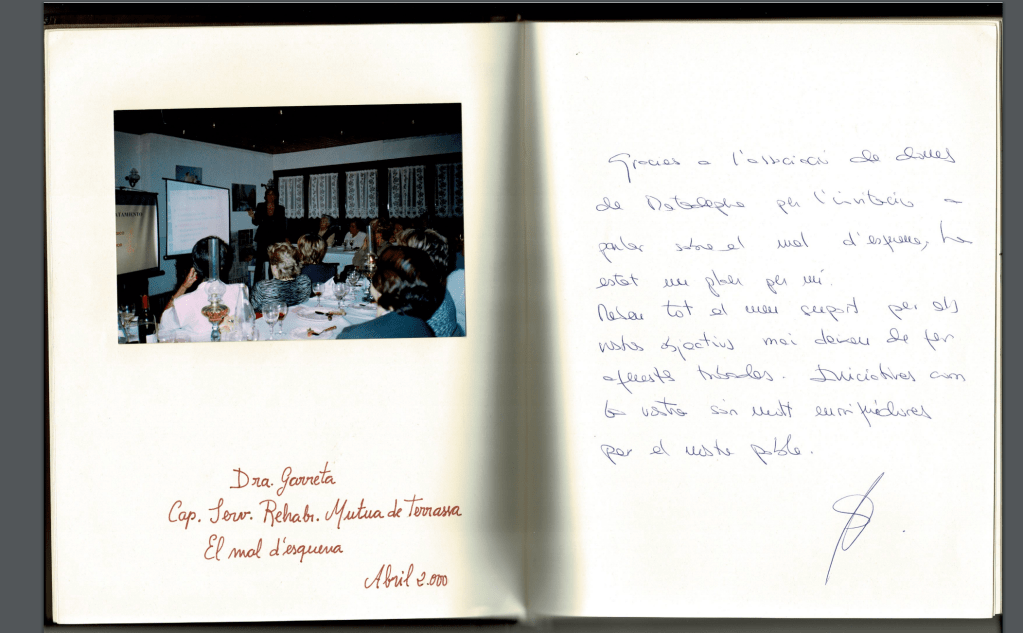 TAMIENTO
Dra. Garreta
Cap. Serv. Rehabi. Mutua de Terrassa
El mal d'esquena
Abril 2.000
Gracies a l'associació de dones
de Matadepera per l'invitació a
parlar sobre el mal d'esquena, ha
estat un plaer per mi.
tot el meu suport per als
vostres objectius mai deixeu de fer
aquestes trobades. Iniciatives com
la vostra són molt enriquidores
per el nostre poble.